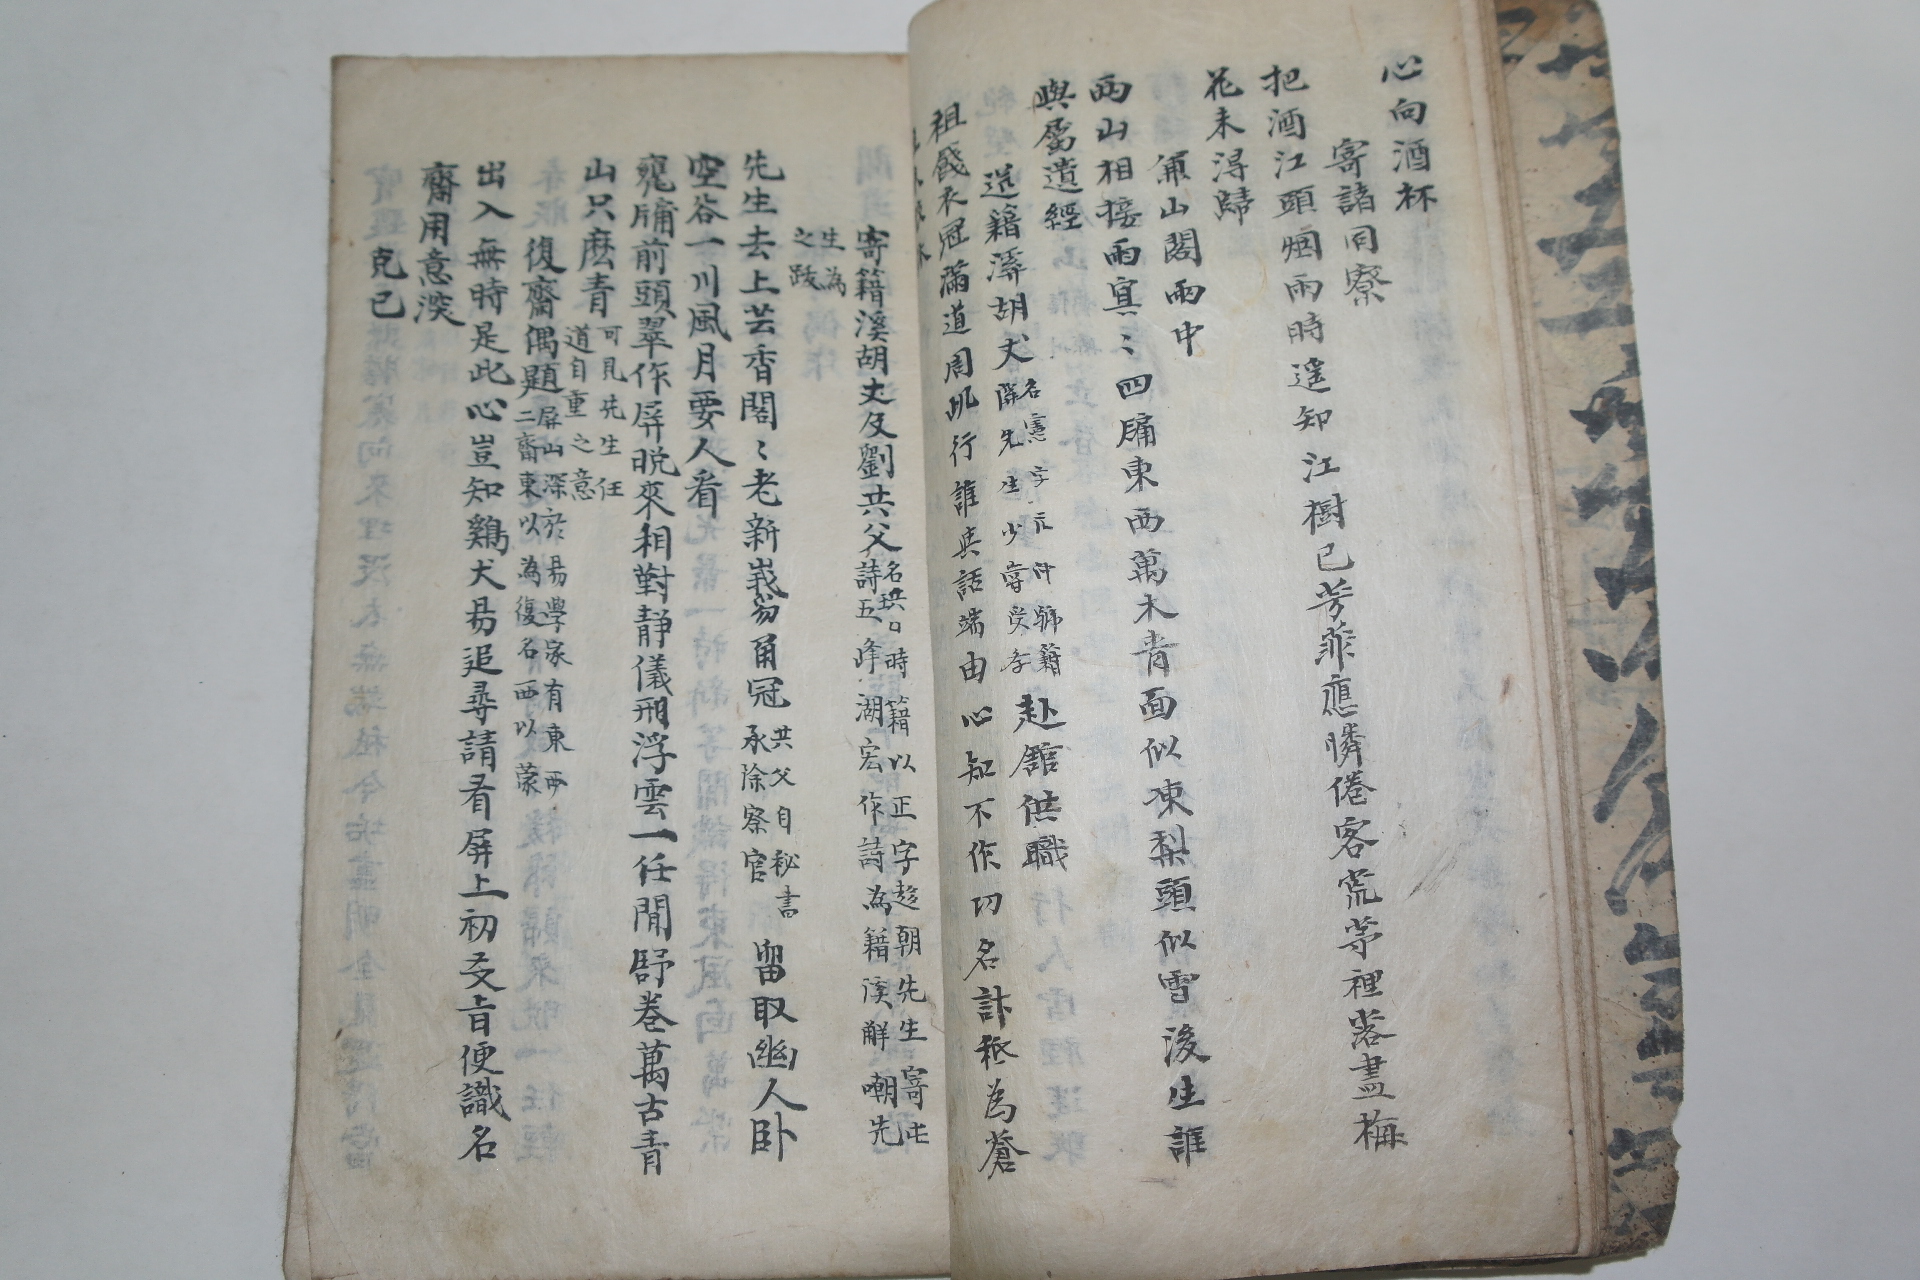 心向酒杯
寄諸同寮
把酒江頭烟雨時遥知江樹已芳菲應憐倦客荒茅裡落盡梅
花未淂歸
兼山閣雨中
兩山相接雨冥〻四牖東西萬木青面似凍梨頭似雪後生誰
與屬遺經
送籍溪胡丈名憲字元仲號籍溪先生少尊受李赴舘供職
祖餞衣冠滿道周此行誰與話端由心知不作功名計秪為蒼
寄籍溪胡丈及劉共父詩名珙時籍以正字趍朝先生寄此五峰胡宏作詩為籍溪觧嘲先
生為之跋
先生去上芸香閣〻老新峩豸角冠共父自秘書承除察官留取幽人卧
空谷一川風月要人看
甕牖前頭翠作屏晩來相對静儀刑浮雲一任閒舒卷萬古青
山只麽青可見先生任道自重之意
復齋偶題屏山深於易學家有東西二齋東以為復名西以蒙
出入無時是此心豈知鷄犬易追尋請看屏上初爻旨便識名
齋用意深
克己